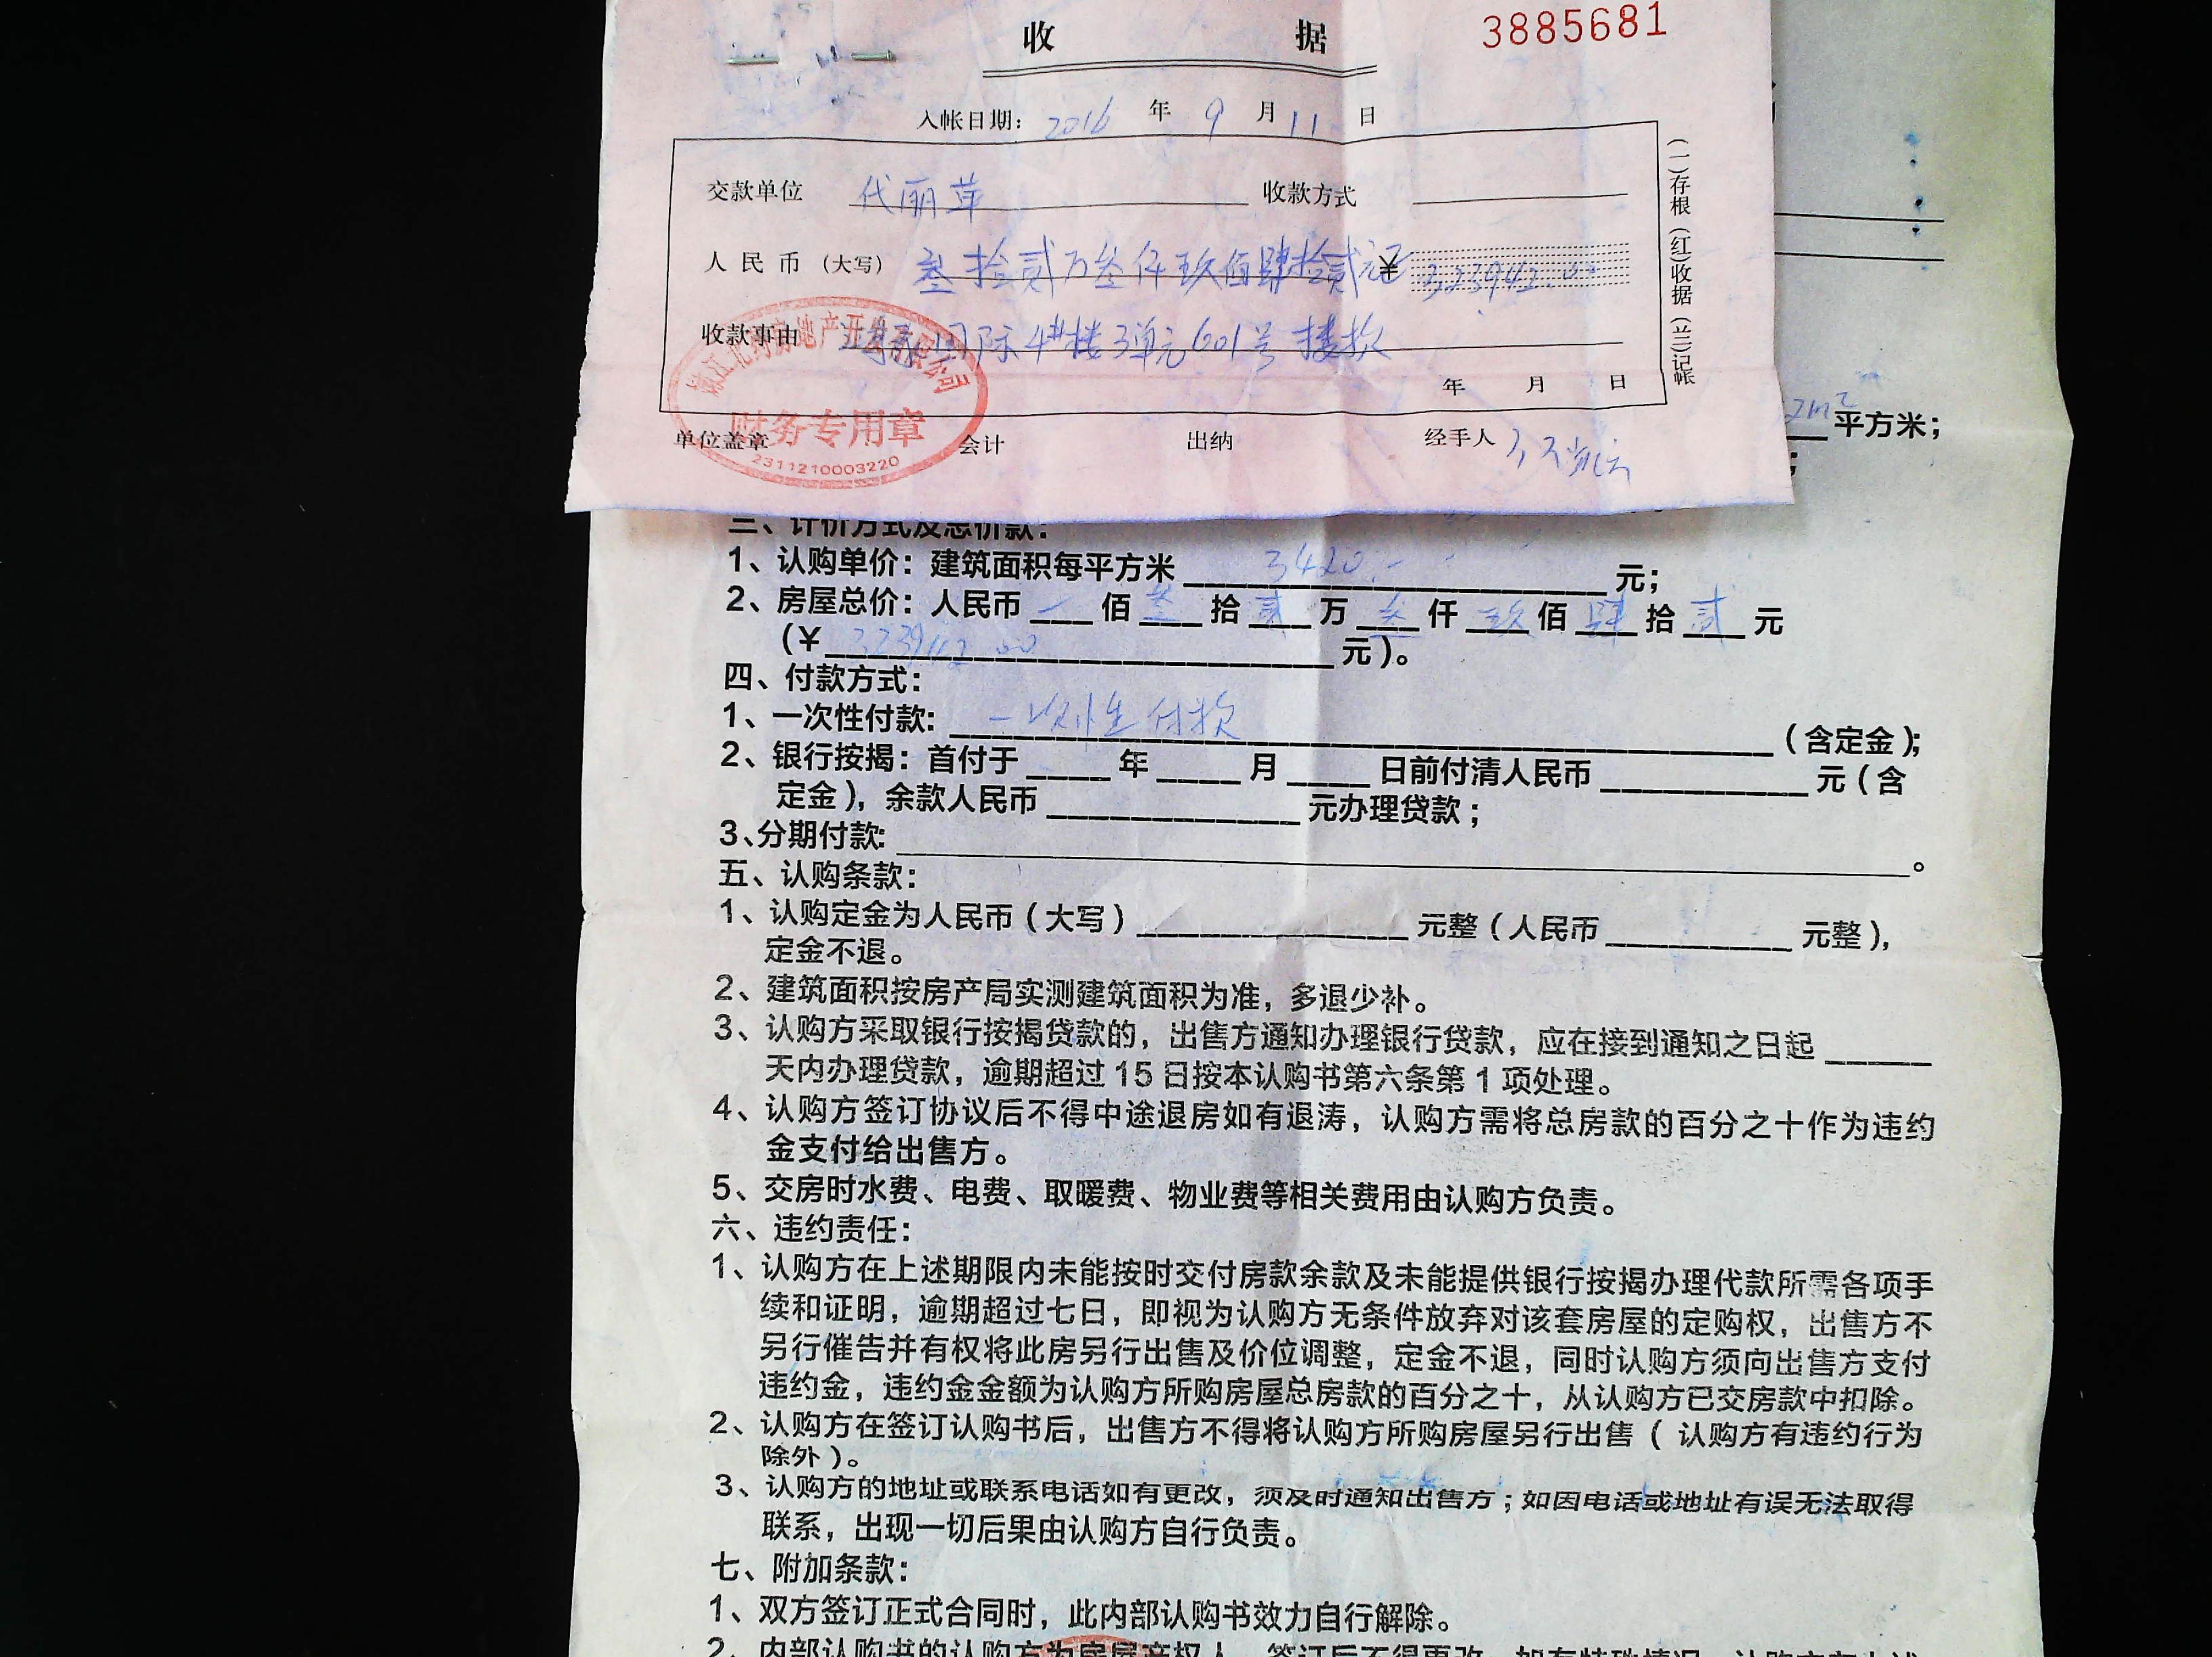 收 据
3885681
入帐日期： 2016 年 9 月 11 日
交款单位 代丽苹 收款方式
人民币（大写） 叁拾贰万叁仟玖佰肆拾贰元 ¥ 323942.00
收款事由 国际4#楼3单元601号 楼款
年 月 日
单位盖章 会计 出纳 经手人
（一）存根（红）收据（兰）记帐
房地产开发有限公司
财务专用章
2311210003220
2m² 平方米；
；
三、计价方式及总价款：
1、认购单价：建筑面积每平方米 3420.- 元；
2、房屋总价：人民币 一 佰 叁 拾 贰 万 叁 仟 玖 佰 肆 拾 贰 元
（¥ 323942.00 元）。
四、付款方式：
1、一次性付款: 一次性付款 （含定金）；
2、银行按揭：首付于 年 月 日前付清人民币 元（含
定金），余款人民币 元办理贷款；
3、分期付款: 。
五、认购条款：
1、认购定金为人民币（大写） 元整（人民币 元整），
定金不退。
2、建筑面积按房产局实测建筑面积为准，多退少补。
3、认购方采取银行按揭贷款的，出售方通知办理银行贷款，应在接到通知之日起
天内办理贷款，逾期超过 15 日按本认购书第六条第 1 项处理。
4、认购方签订协议后不得中途退房如有退涛，认购方需将总房款的百分之十作为违约
金支付给出售方。
5、交房时水费、电费、取暖费、物业费等相关费用由认购方负责。
六、违约责任：
1、认购方在上述期限内未能按时交付房款余款及未能提供银行按揭办理代款所需各项手
续和证明，逾期超过七日，即视为认购方无条件放弃对该套房屋的定购权，出售方不
另行催告并有权将此房另行出售及价位调整，定金不退，同时认购方须向出售方支付
违约金，违约金金额为认购方所购房屋总房款的百分之十，从认购方已交房款中扣除。
2、认购方在签订认购书后，出售方不得将认购方所购房屋另行出售（认购方有违约行为
除外）。
3、认购方的地址或联系电话如有更改，须及时通知出售方；如因电话或地址有误无法取得
联系，出现一切后果由认购方自行负责。
七、附加条款：
1、双方签订正式合同时，此内部认购书效力自行解除。
2、内部认购书的认购方为房屋产权人，签订后不得更改，如有特殊情况，认购方